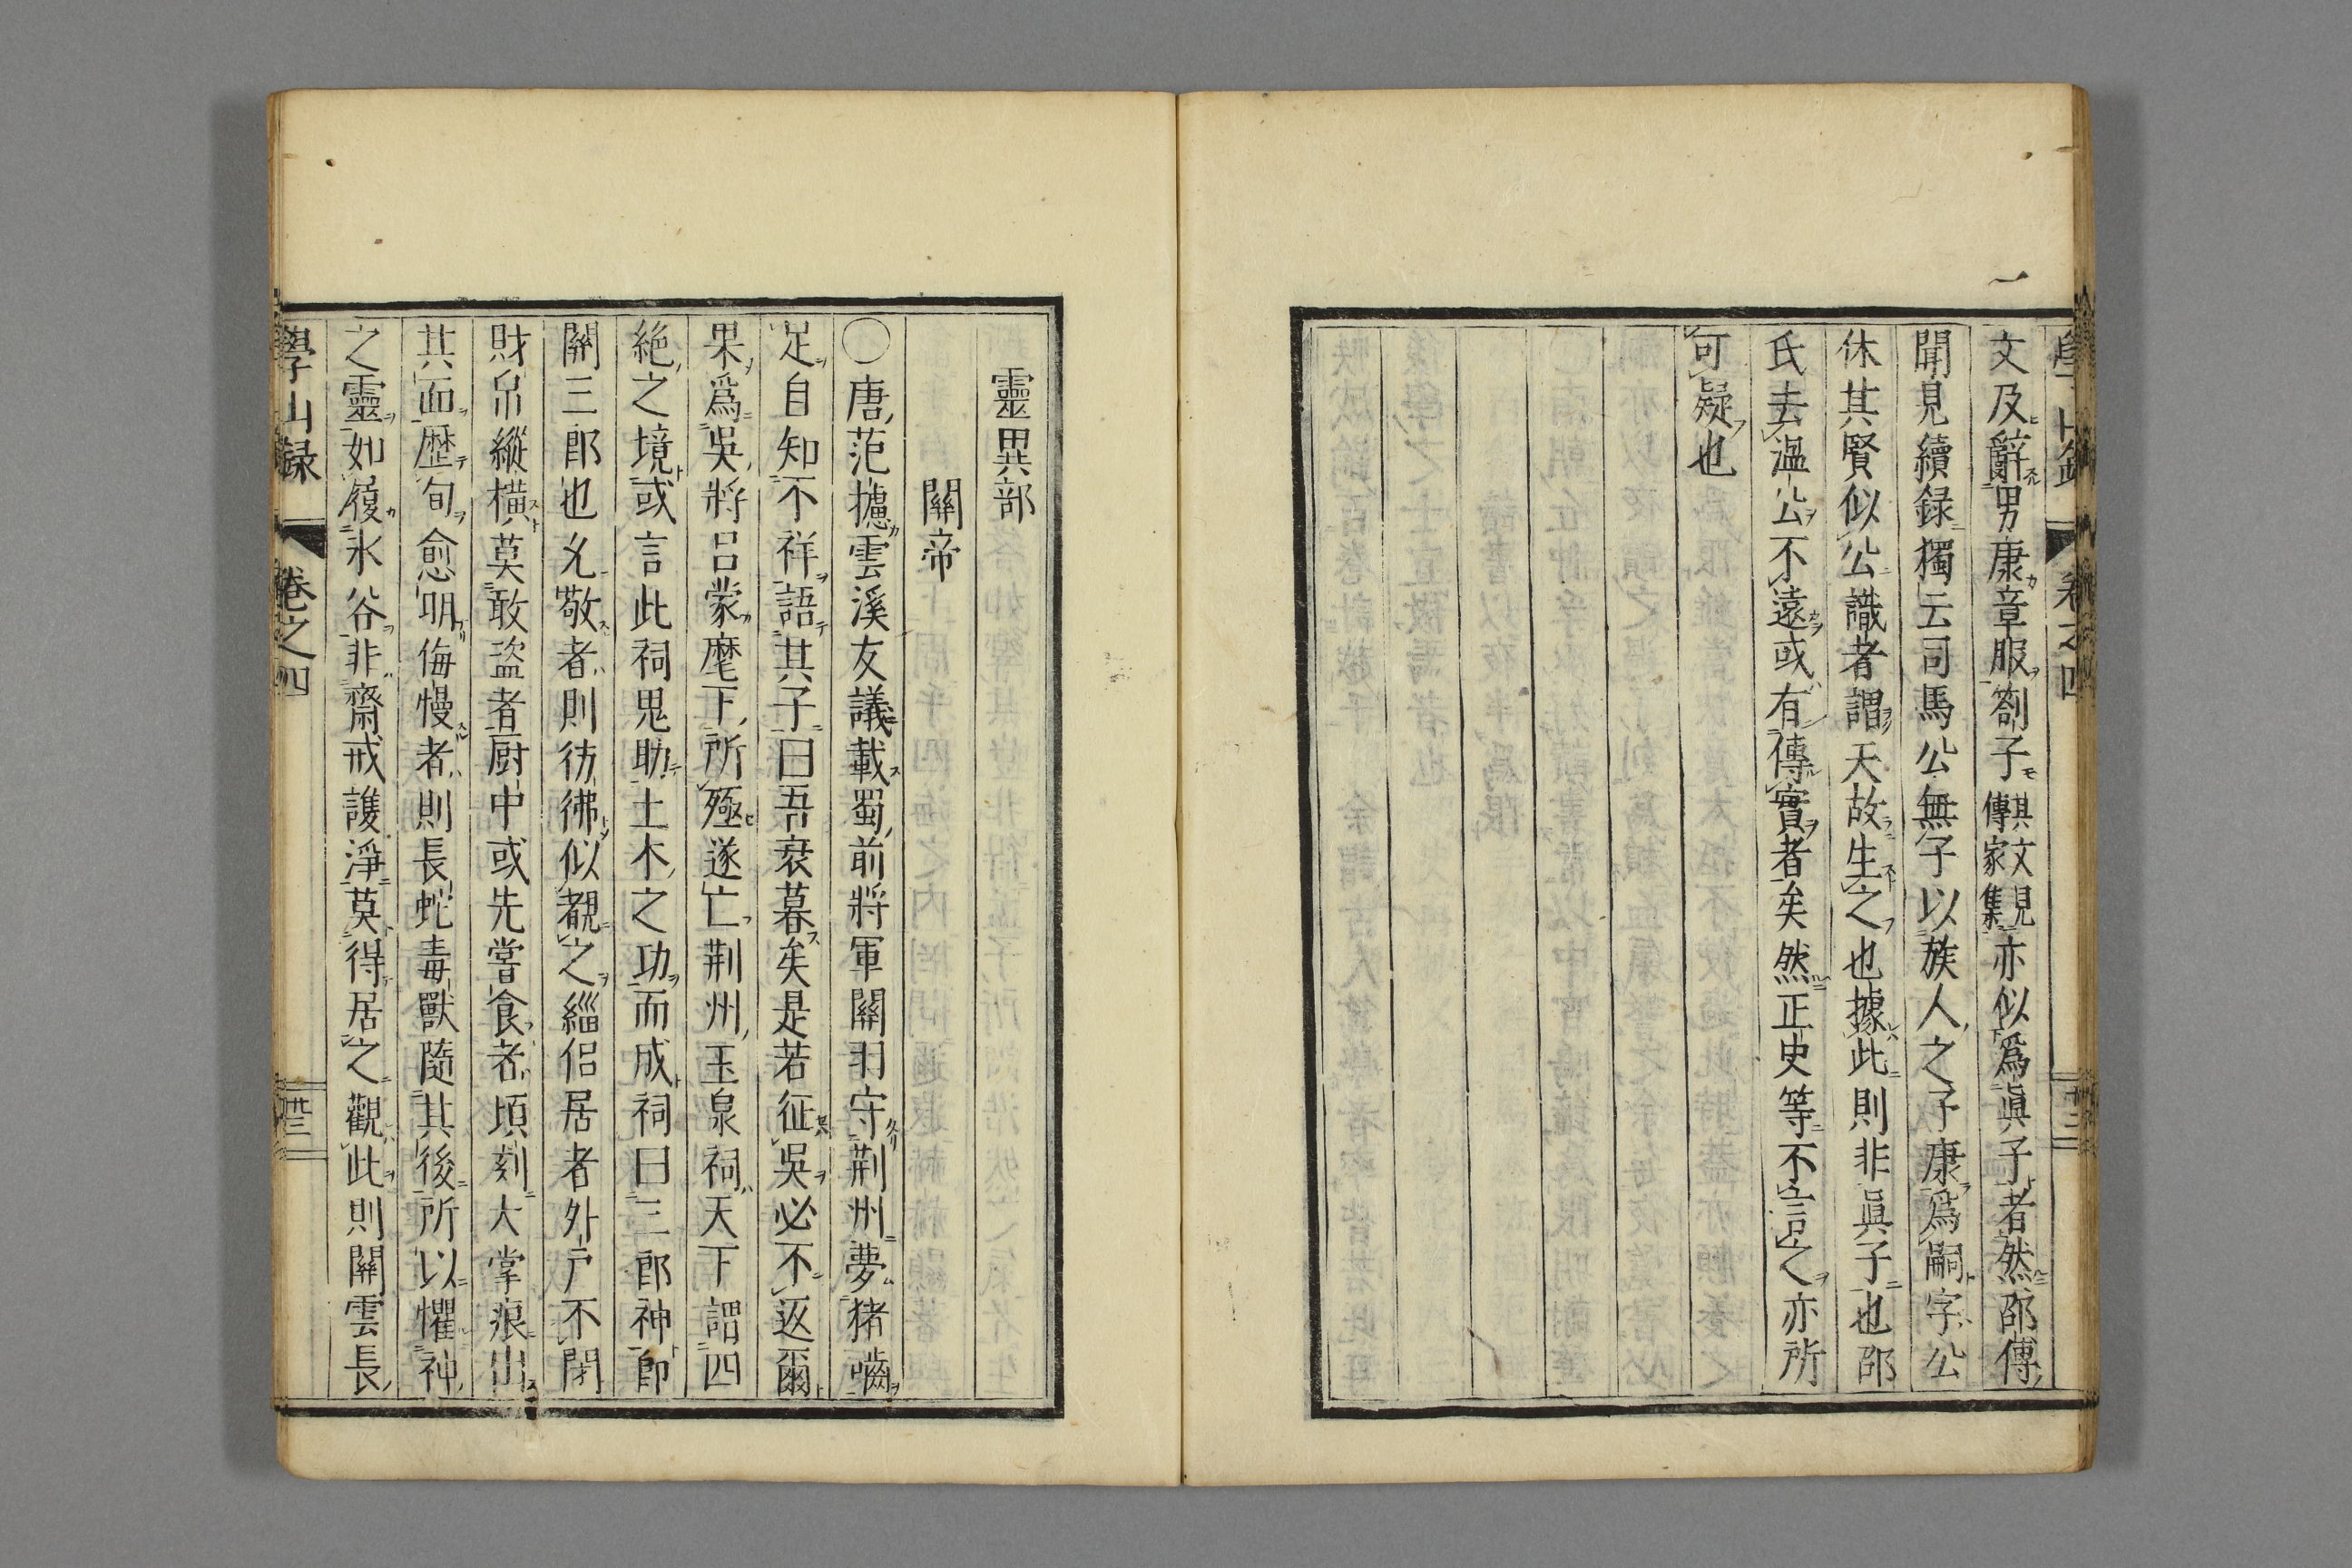 文及辭男康章服劄子其文見傳家集亦似爲眞子者然邵傳
聞見續録獨云司馬公無子以族人之子康爲嗣字公
休其賢似公識者謂天故生之也據此則非眞子也邵
氏去溫公不遠或有傳實者矣然正史等不言之亦所
可疑也
靈異部
關帝
○唐范攄雲溪友議載蜀前將軍關羽守荆州夢猪嚙
足自知不祥語其子曰吾衰暮矣是若征吳必不返爾
果爲吳將呂蒙麾下所殛遂亡荆州玉泉祠天下謂四
絶之境或言此祠鬼助土木之功而成祠曰三郎神即
關三郎也允敬者則彷彿似覩之緇侣居者外戸不閉
財帛縱横莫敢盗者厨中或先嘗食者頃刻大掌痕出
其面歴旬愈明侮慢者則長蛇毒獸隨其後所以懼神
之靈如履氷谷非齋戒護淨莫得居之觀此則關雲長
學山録 卷之四 廿三